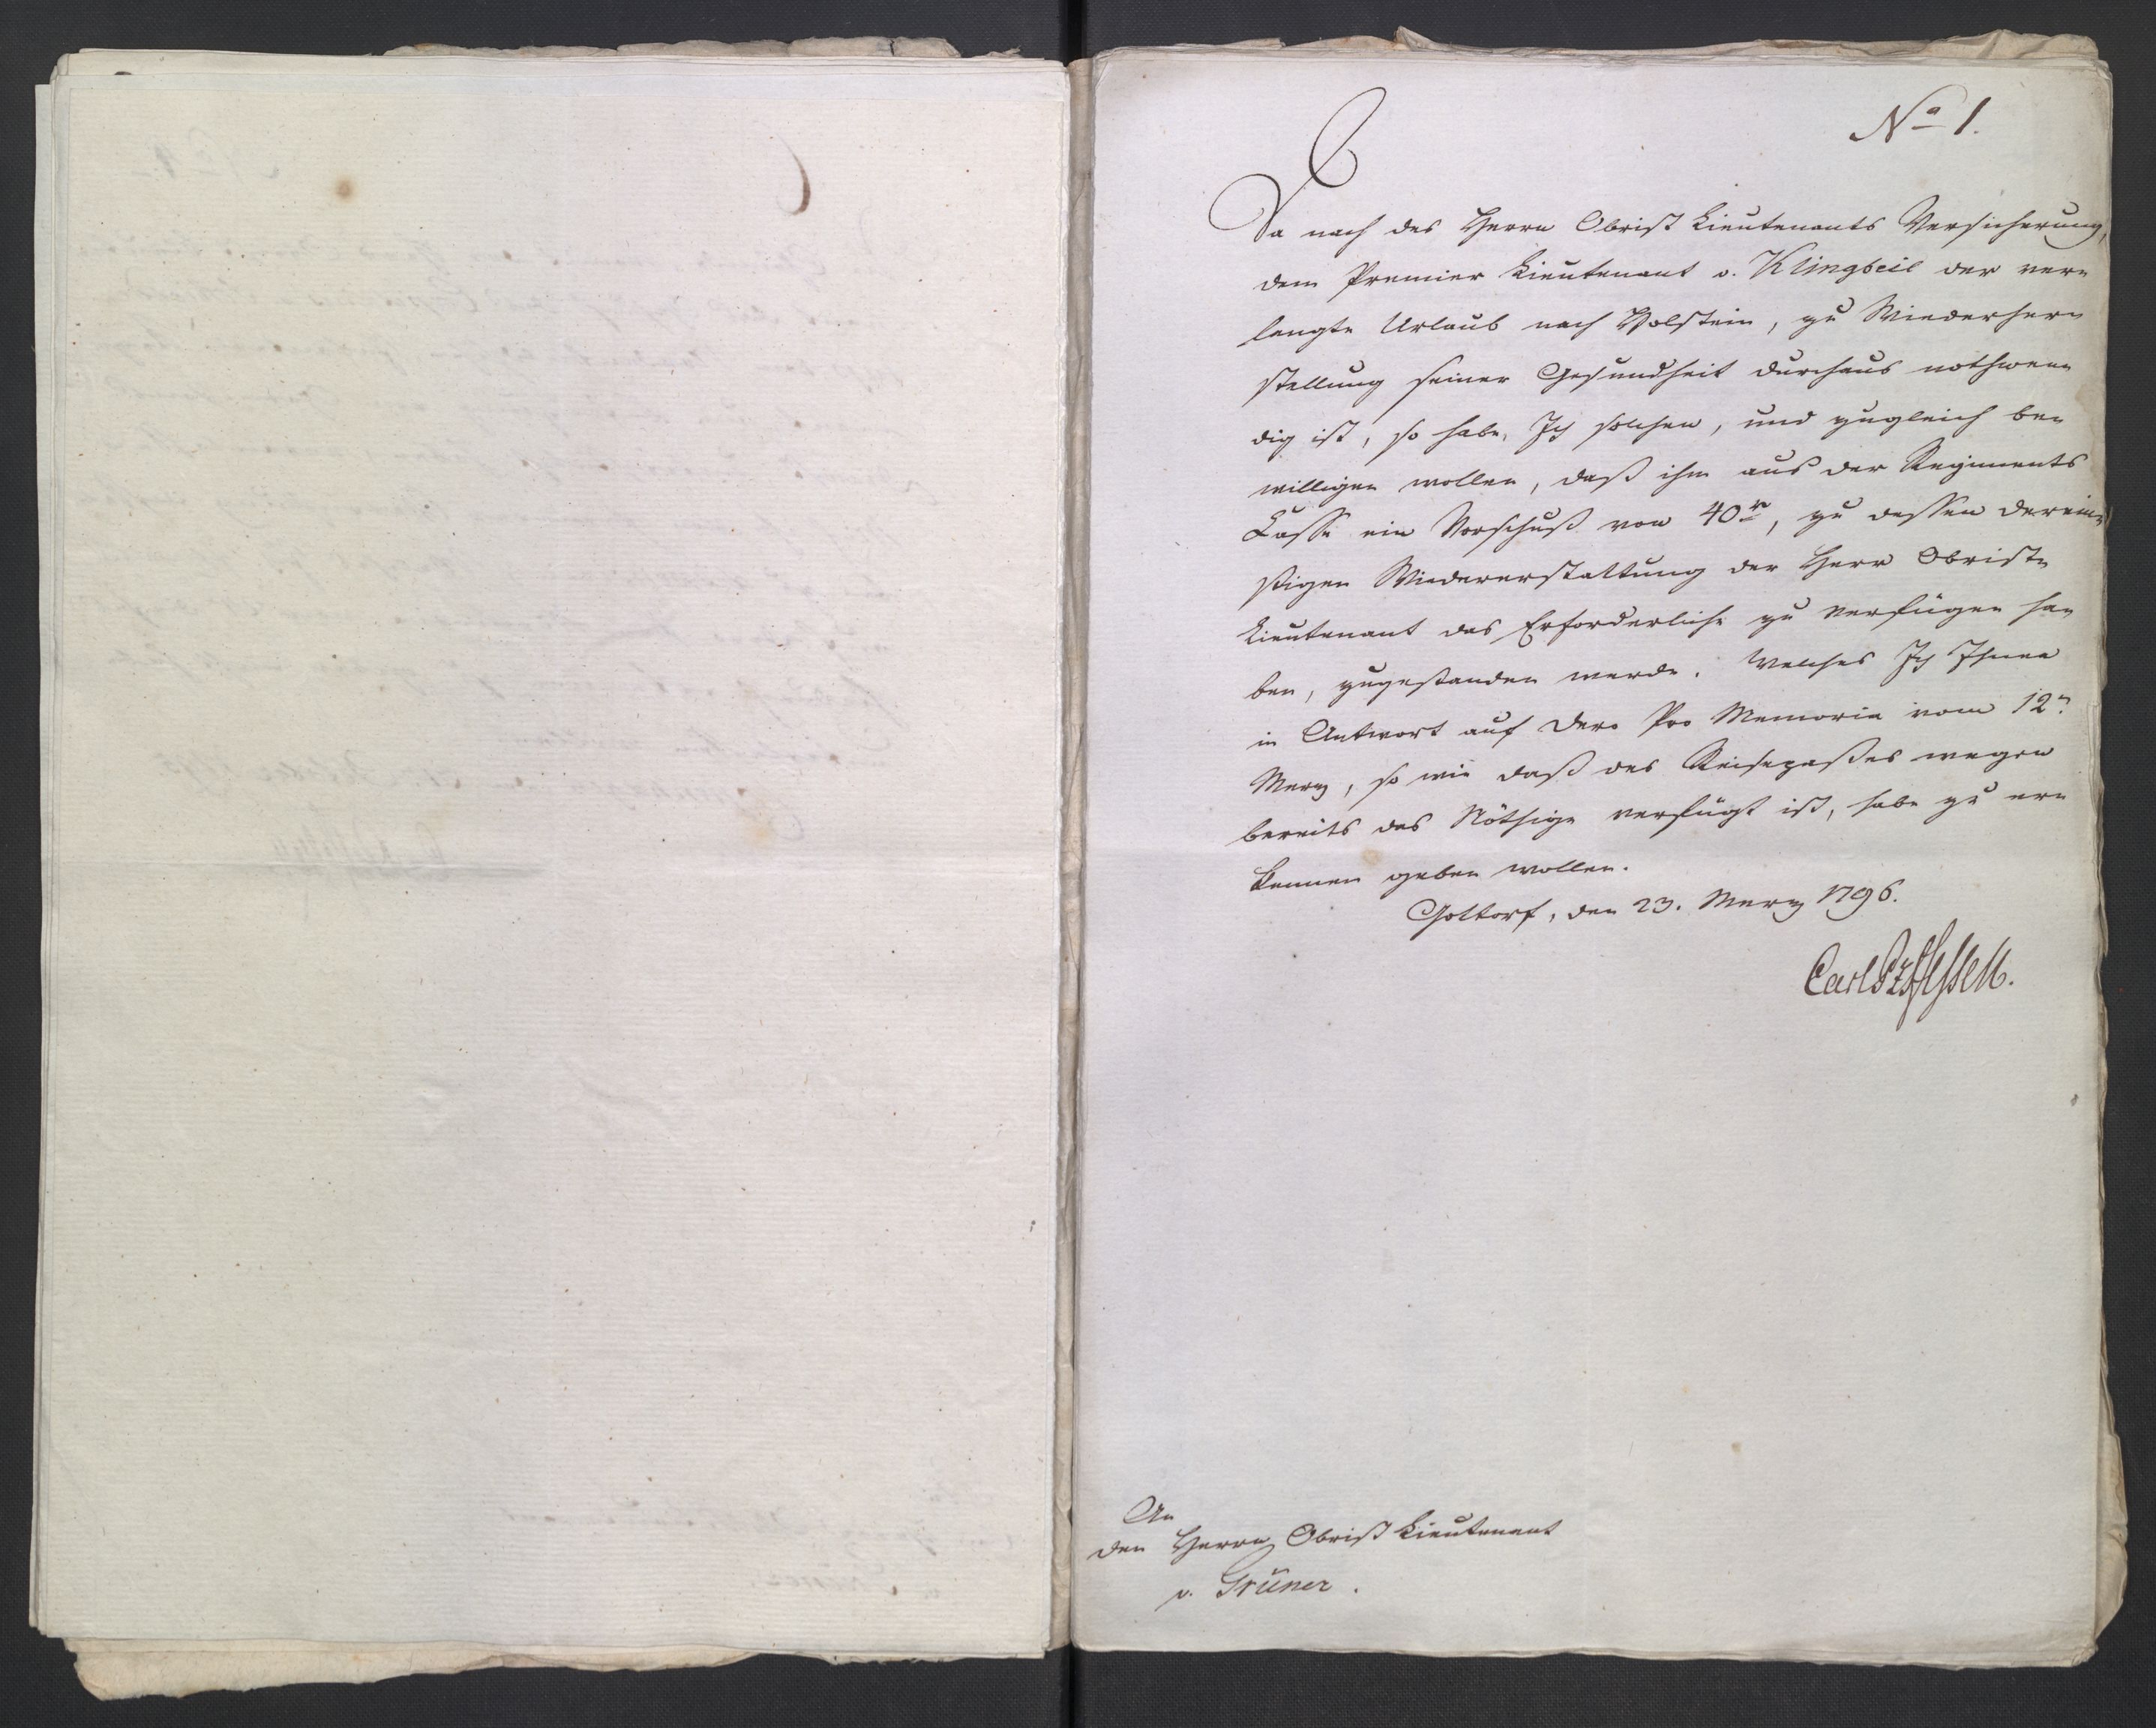 No 1.
Da nach des Herrn Obrist Lieutenants Versicherung,
dem Premier Lieutenant v. Klingbeil der ver=
langte Urlaub nach Holstein, zu Wiederher=
stellung seiner Gesundheit durchaus nothwen=
dig ist, so habe Ich solchen, und zugleich be=
willigen wollen, daß ihm aus der Regiments
Casse ein Vorschuß von 40 , zu dessen derein=
stigen Wiedererstattung der Herr Obrist=
Lieutenant das Erforderliche zu verfügen ha=
ben, zugestanden werde. Welches Ich Ihnen
in Antwort auf Dero Pro Memoria vom 12n
Merz, so wie daß des Reisepaßes wegen
bereits das Nöthige verfügt ist, habe zu er=
kennen geben wollen.
Gottorf, den 23. Merz 1796.
Carl PzHessen.
An
den Herrn Obrist Lieutenant
v. Grüner.